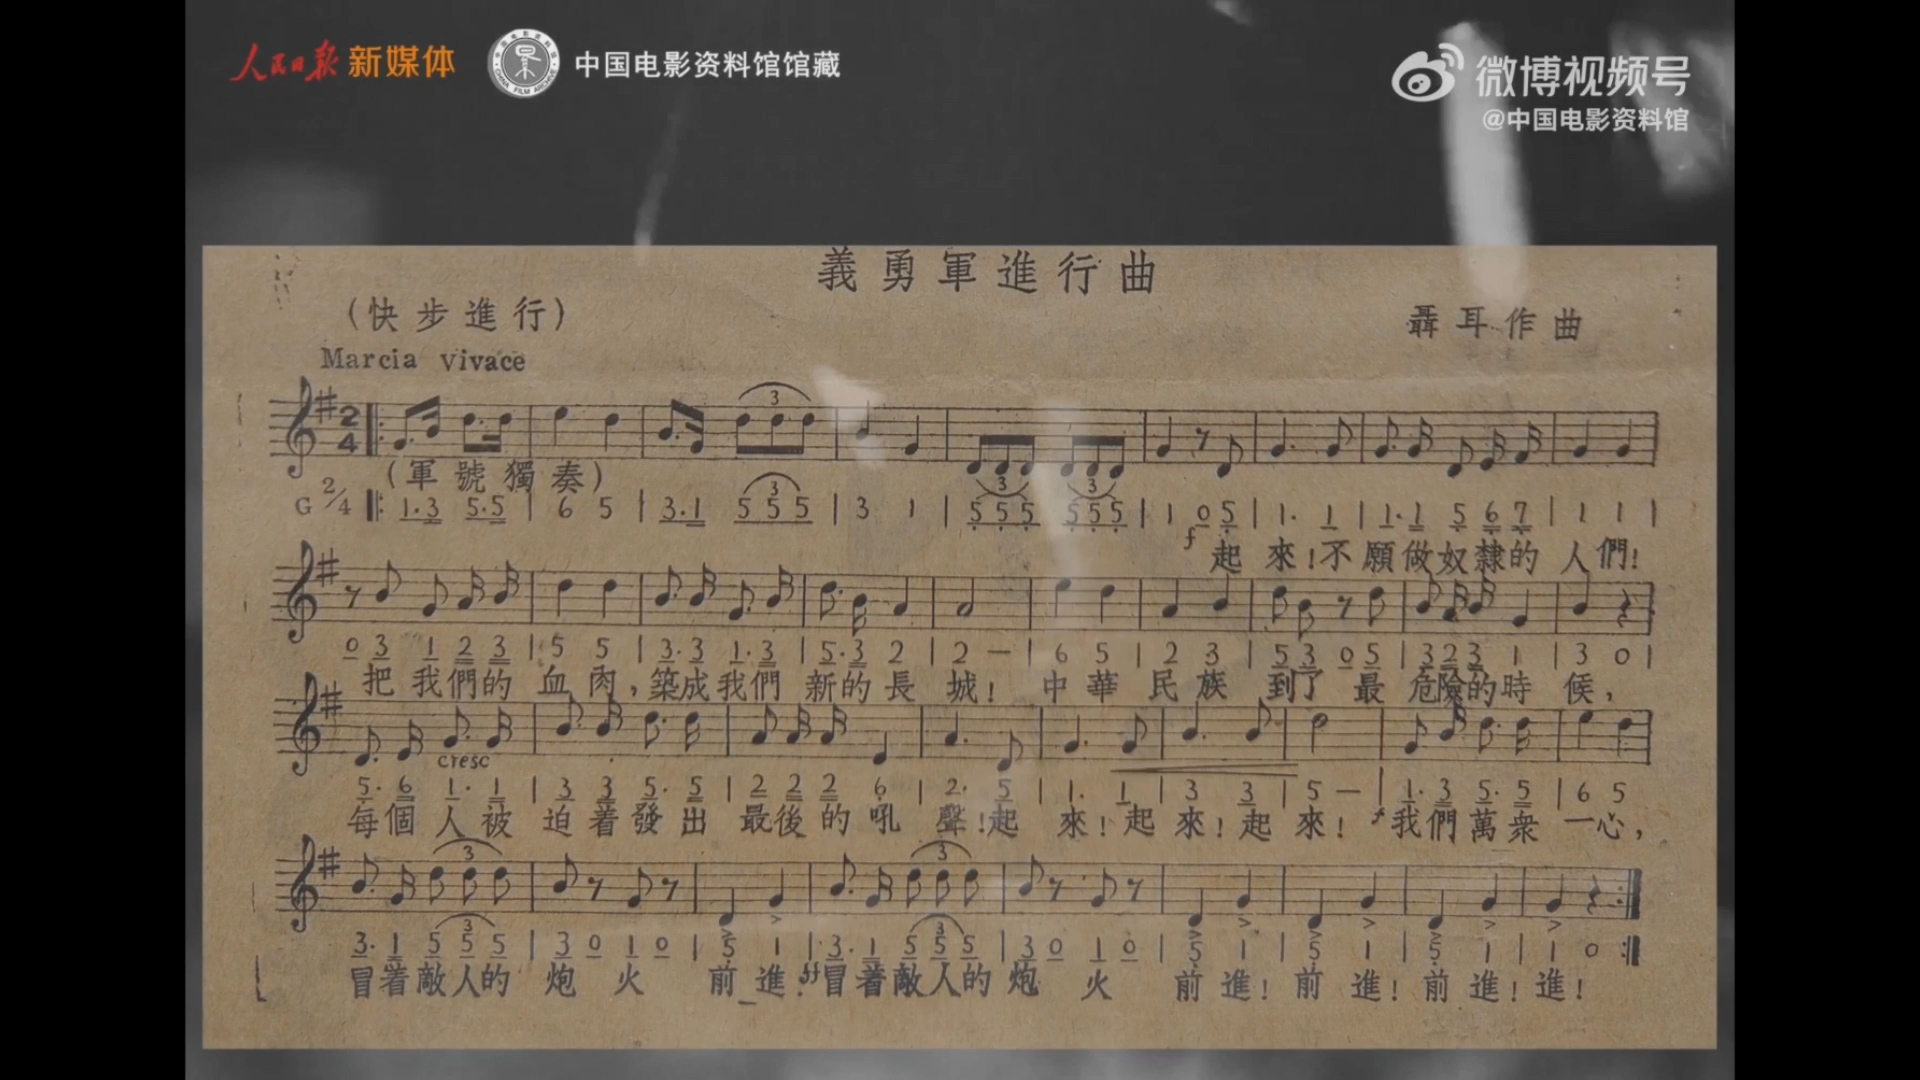 人民日报 新媒体 中国电影资料馆馆藏
微博视频号
@中国电影资料馆
義勇軍進行曲
(快步進行)
聶耳作曲
Marcia Vivace
2/4
3
(軍號獨奏)
3 3 3
G 2/4 1·3 5·5 | 6 5 | 3·1 5 5 5 | 3 1 | 5 5 5 5 5 5 | 1 0 5 | 1· 1 | 1·1 5 6 7 | 1 1 |
f 起來!不願做奴隸的人們!
0 3 1 2 3 | 5 5 | 3·3 1·3 | 5·3 2 | 2 — | 6 5 | 2 3 | 5 3 0 5 | 3 2 3 1 | 3 0 |
把我們的血肉,築成我們新的長城!中華民族到了最危險的時候,
cresc
5·6 1·1 | 3 3 5·5 | 2 2 2 6 | 2· 5 | 1· 1 | 3 3 | 5 — | 1·3 5·5 | 6 5
每個人被迫着發出最後的吼聲!起來!起來!起來! f 我們萬衆一心,
3 3
3 3
3·1 5 5 5 | 3 0 1 0 | 5 1 | 3·1 5 5 5 | 3 0 1 0 | 5 1 | 5 1 | 5 1 | 1 0
冒着敵人的炮火前進!ff冒着敵人的炮火前進!前進!前進!進!